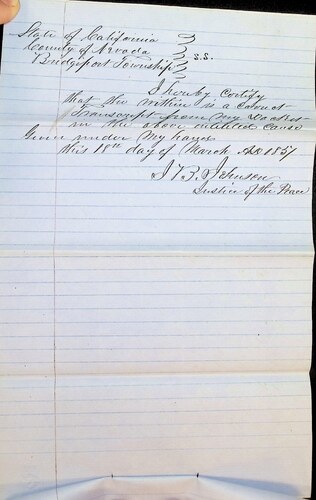 State of California
County of Nevada } S.S.
Bridgeport Township
I hereby certify
that the within is a correct
Transcript from my Docket
in the above intitled cause
Given under my hand
this 18th day of March AD 1857
J. Johnson
Justice of the Peace